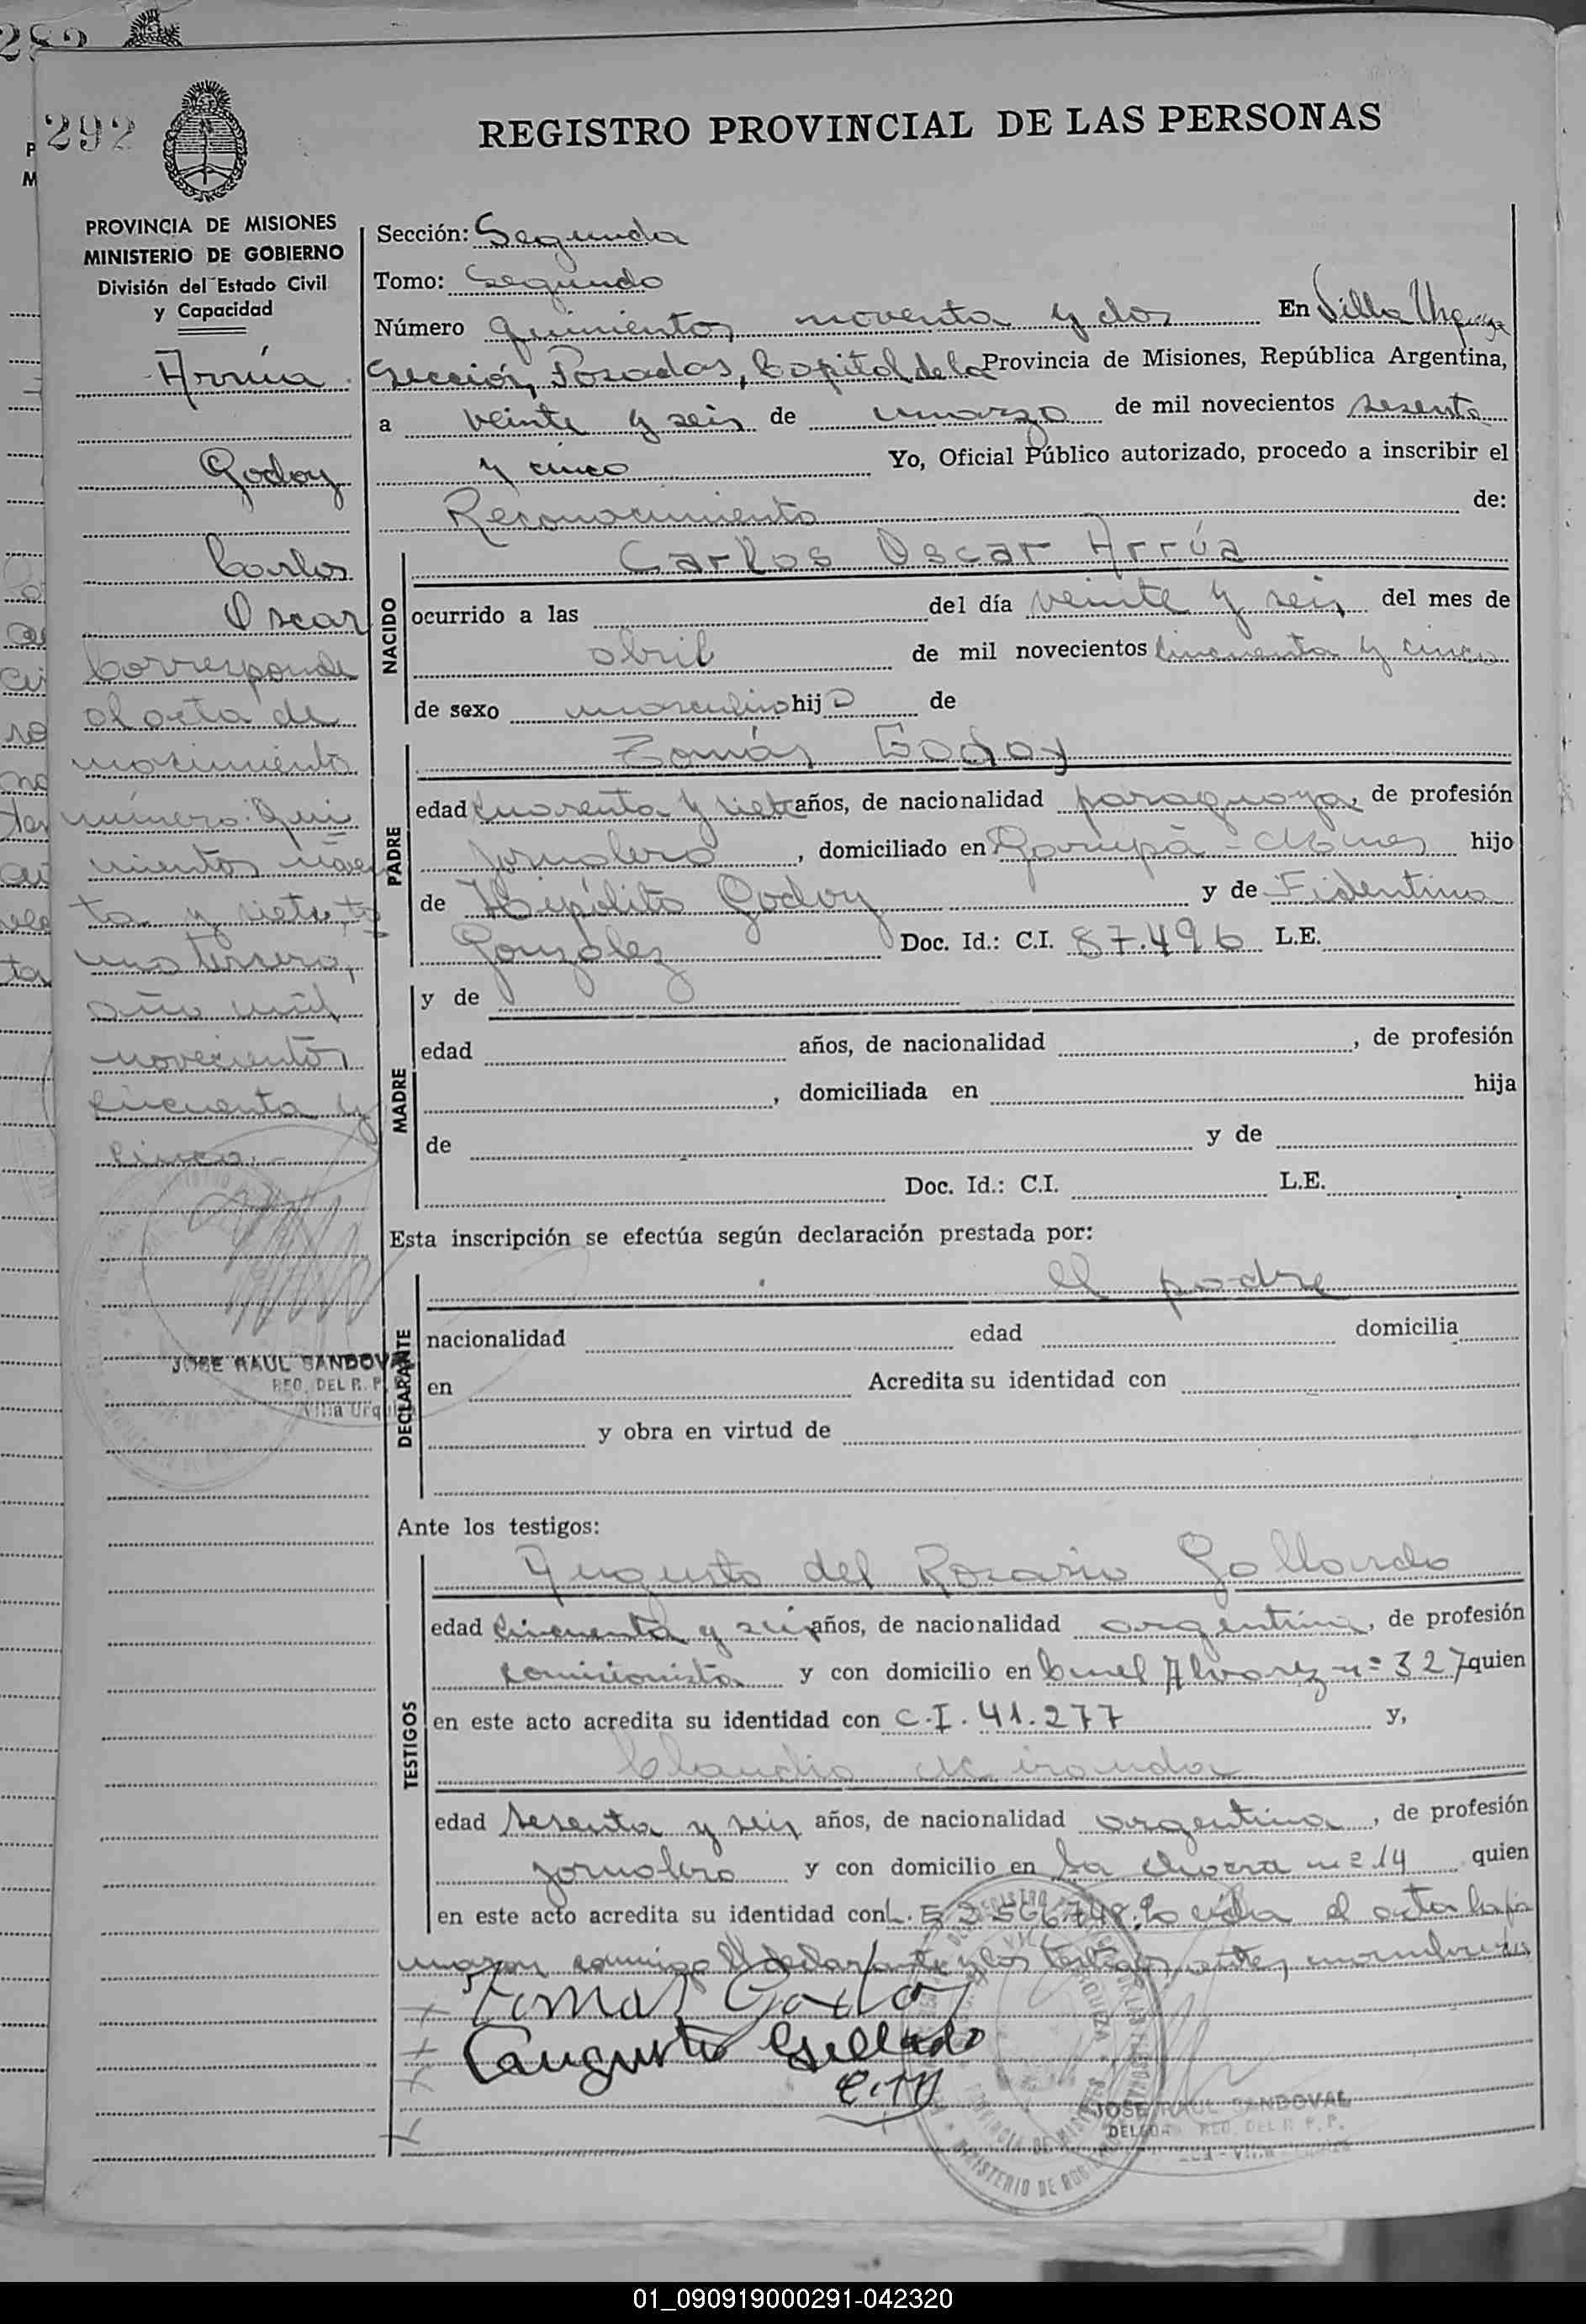 292
REGISTRO PROVINCIAL DE LAS PERSONAS
PROVINCIA DE MISIONES
MINISTERIO DE GOBIERNO
División del Estado Civil
y Capacidad
Arrúa
Godoy
Carlos
Oscar
Corresponde
al acta de
nacimiento
número: Qui
nientos noven
ta y siete, to
mo tercero,
año mil
novecientos
cincuenta y
cinco.-
JOSE RAUL SANDOVAL
REG. DEL R. P.
Villa Urqui
Sección: Segunda
Tomo: Segundo
Número quinientos noventa y dos En Villa Urquiza
Sección, Posadas, Capital de la Provincia de Misiones, República Argentina,
a veinte y seis de marzo de mil novecientos sesenta
y cinco Yo, Oficial Público autorizado, procedo a inscribir el
Reconocimiento de:
NACIDO
Carlos Oscar Arrúa
ocurrido a las del día veinte y seis del mes de
abril de mil novecientos cincuenta y cinco
de sexo masculino hijo de
PADRE
Tomás Godoy
edad cuarenta y siete años, de nacionalidad paraguaya, de profesión
jornalero, domiciliado en Garupá - Mnes hijo
de Hipólito Godoy y de Fidentina
González Doc. Id.: C.I. 87.496 L.E.
MADRE
y de
edad años, de nacionalidad , de profesión
, domiciliada en hija
de y de
Doc. Id.: C.I. L.E.
Esta inscripción se efectúa según declaración prestada por:
DECLARANTE
el padre
nacionalidad edad domicilia
en Acredita su identidad con
y obra en virtud de
Ante los testigos:
TESTIGOS
Augusto del Rosario Gallardo
edad cincuenta y seis años, de nacionalidad argentina, de profesión
comisionista y con domicilio en Cnel Alvarez nº 327 quien
en este acto acredita su identidad con C.I. 41.277 y,
Claudio Miranda
edad sesenta y seis años, de nacionalidad argentina, de profesión
jornalero y con domicilio en La chacra nº 14 quien
en este acto acredita su identidad con L. E 2566748. Leída el acta la fir
maron conmigo el declarante y los testigos antes nombrados
Tomas Godoy
augusto Gallardo
C.M
JOSE RAUL SANDOVAL
DELEGADO REG. DEL R. P. P.
01_090919000291-042320